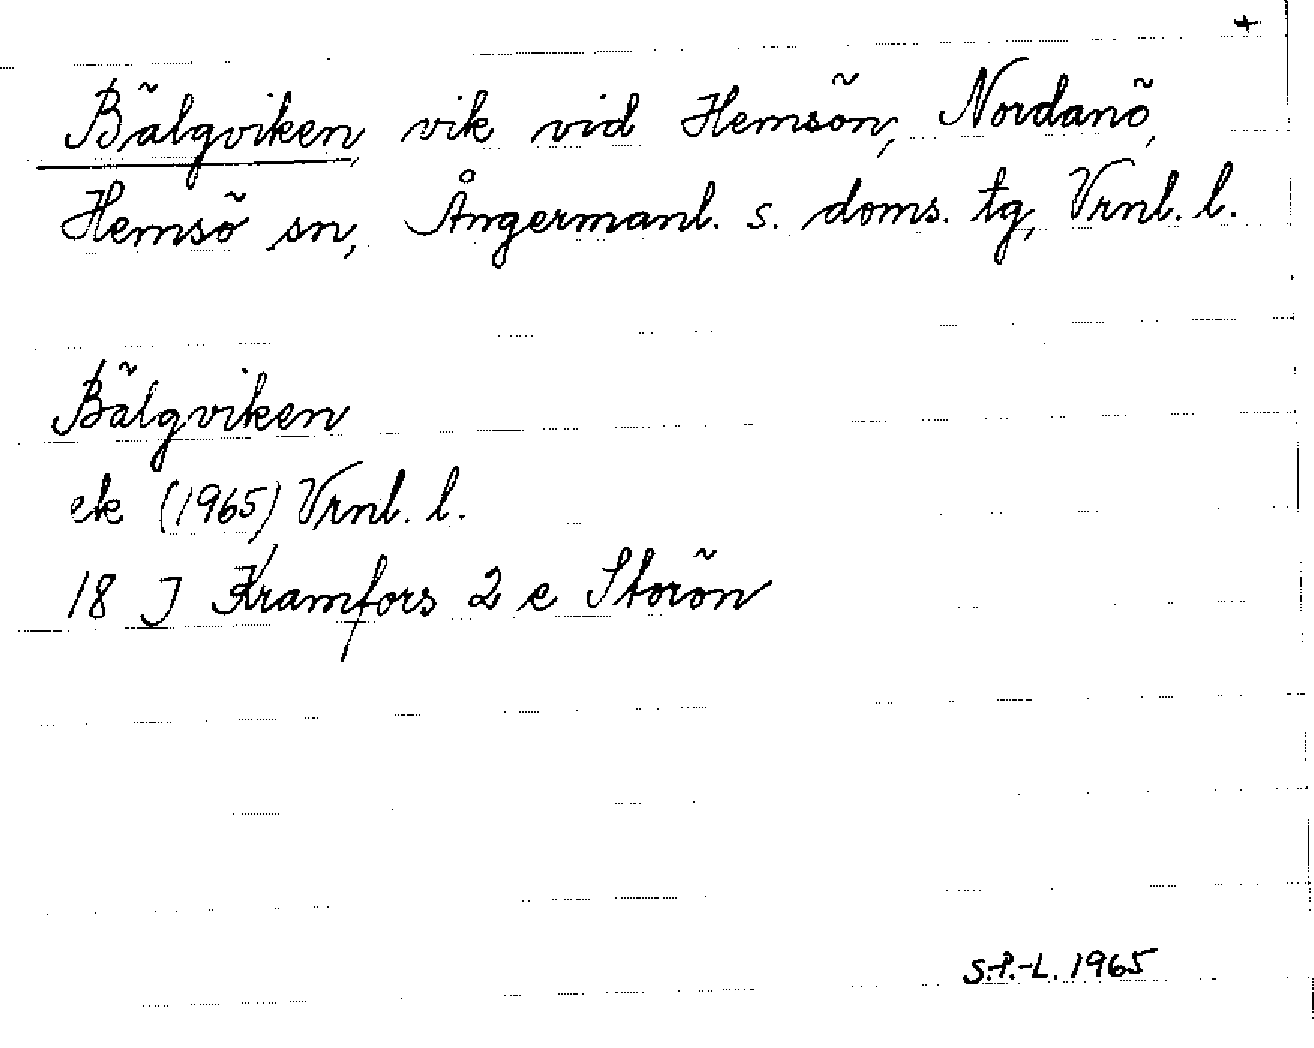 +
Bälgviken, vik vid Hemsön, Nordanö,
Hemsö sn, Ångermanl. s. doms. tg, Vrnl. l.
Bälgviken
ek (1965) Vrnl. l.
18 J Kramfors 2 e Storön
S.P.-L. 1965